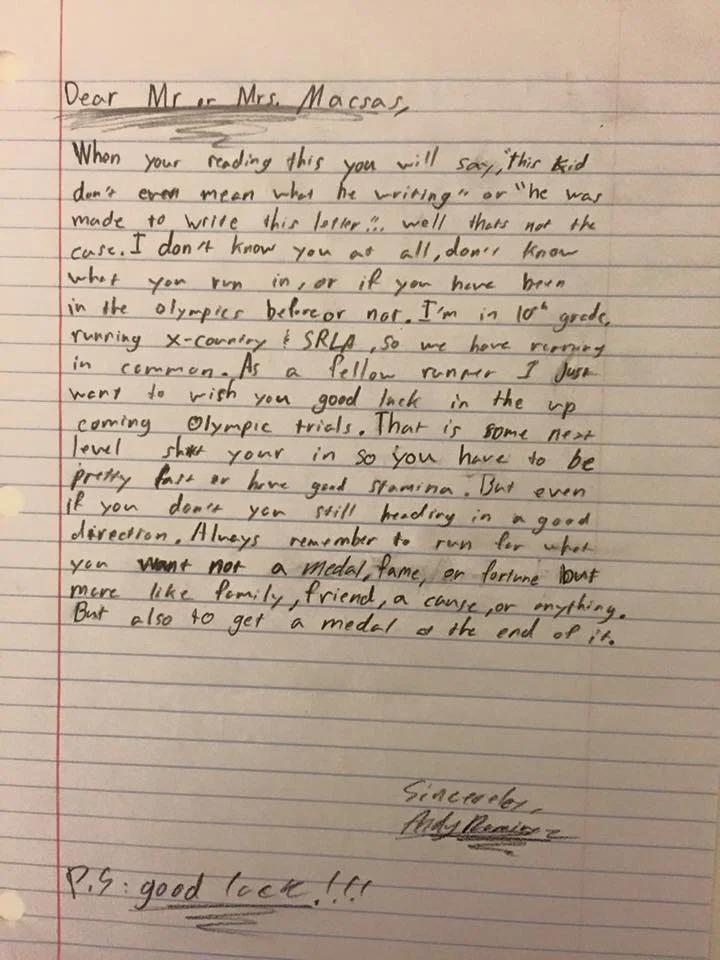 Dear Mr or Mrs. Macsas,
When your reading this you will say, "this kid
don't even mean what he writing" or "he was
made to write this letter"... well thats not the
case. I don't know you at all, don't know
what you run in, or if you have been
in the olympics before or not. I'm in 10th grade,
running x-country & SRLA, so we have running
in common. As a fellow runner I just
want to wish you good luck in the up
coming Olympic trials. That is some next
level your in so you have to be
pretty fast or have good stamina. But even
if you don't you still heading in a good
direction. Always remember to run for what
you want not a medal, fame, or fortune but
more like family, friend, a cause, or anything.
But also to get a medal at the end of it.
Sincerely,
Andy
P.S: good luck!!!